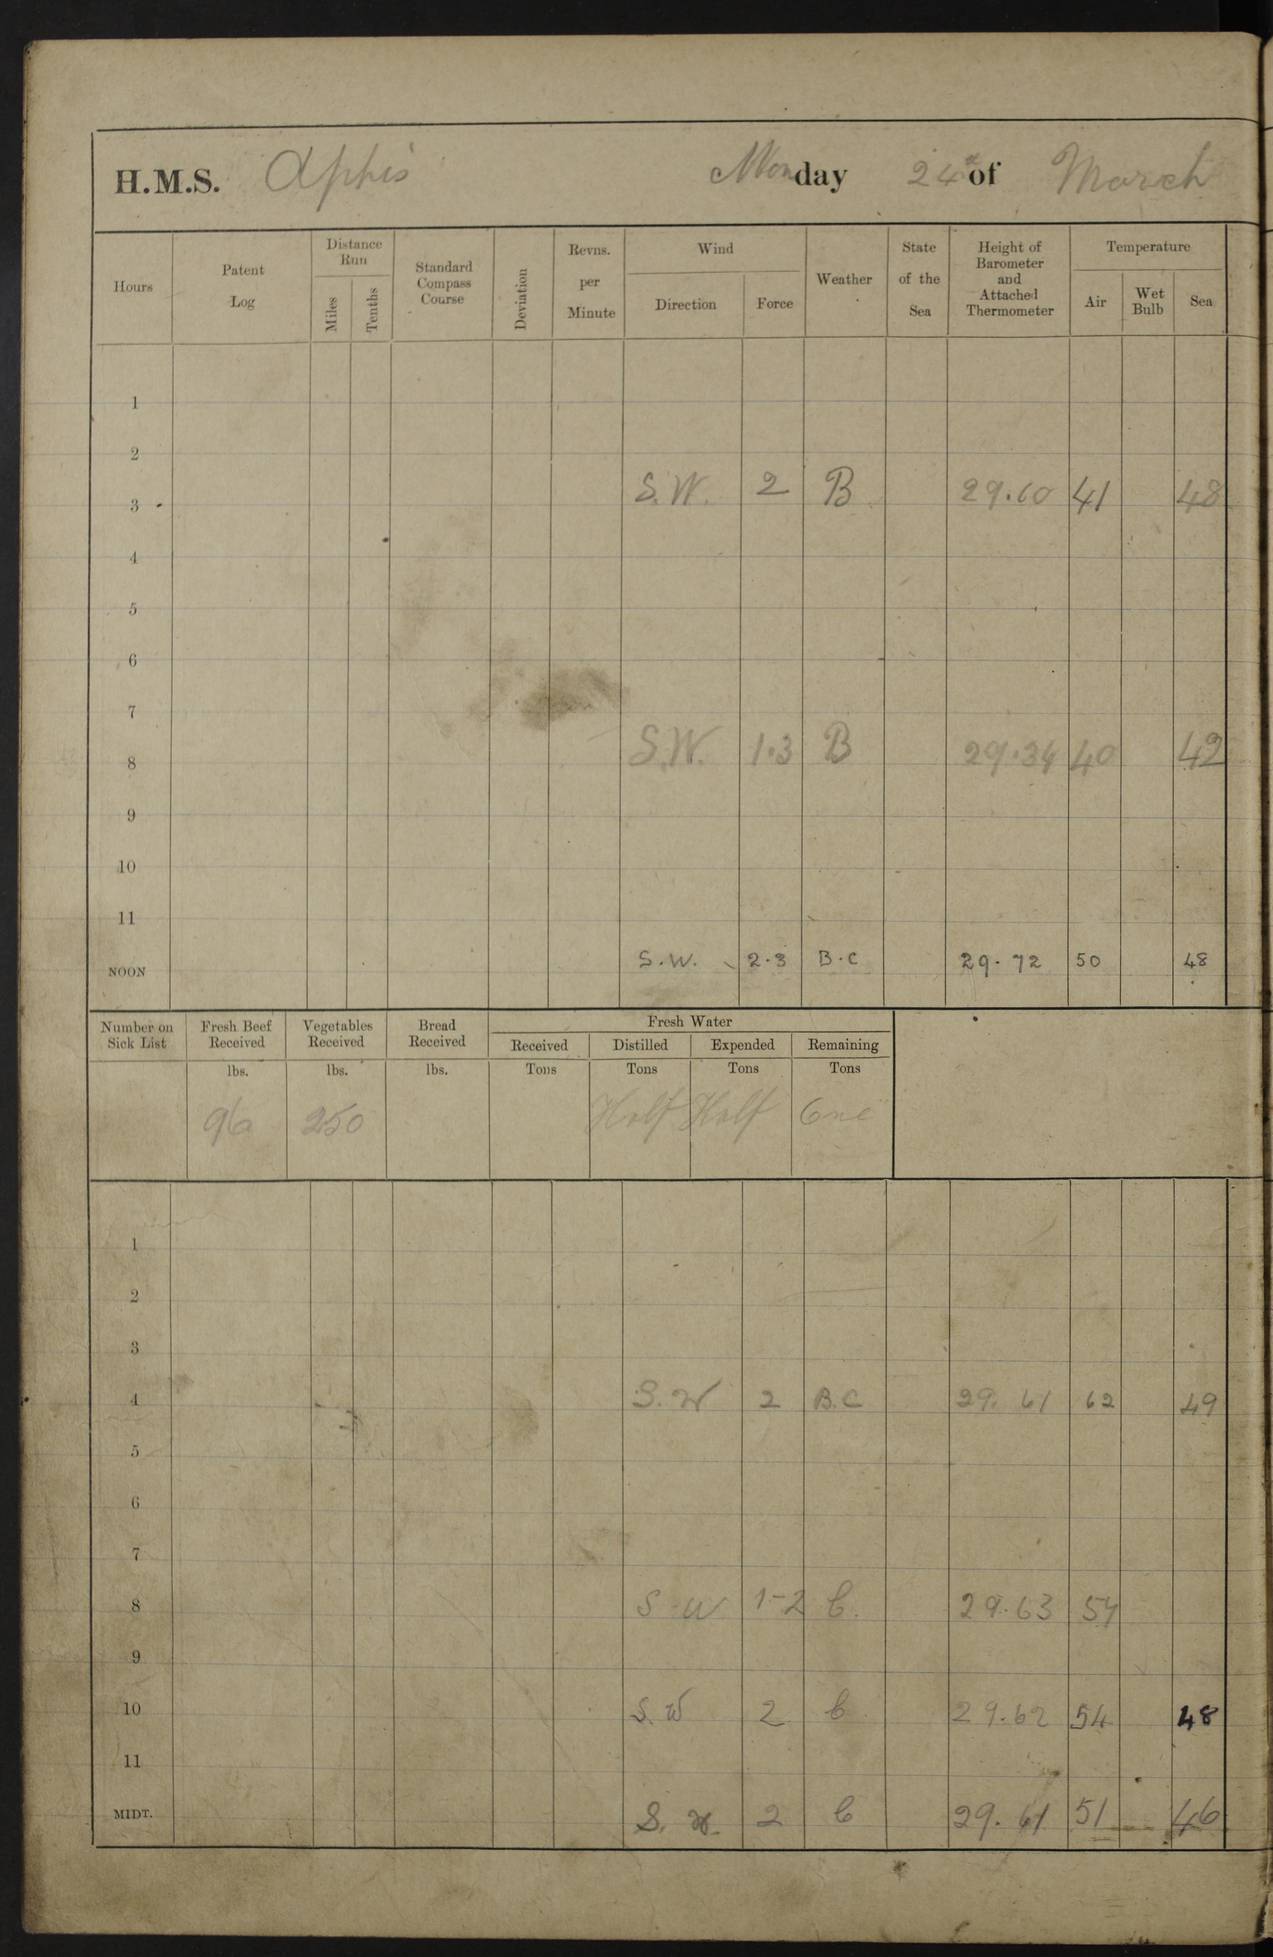 H.M.S. Aphis Monday 24th of March
Hours Patent Log Distance Run Miles Tenths Standard Compass Course Deviation Revns. per Minute Wind Direction Force Weather State of the Sea Height of Barometer and Attached Thermometer Temperature Air Wet Bulb Sea
1
2
3 S.W. 2 B 29.60 41 48
4
5
6
7
8 S.W. 1.3 B 29.34 40 42
9
10
11
NOON S.W. 2.3 B.C 29.72 50 48
Number on Sick List Fresh Beef Received Vegetables Received Bread Received Fresh Water
Received Distilled Expended Remaining
lbs. lbs. lbs. Tons Tons Tons Tons
96 250 Half Half One
1
2
3
4 S.W 2 B.C 29.61 62 49
5
6
7
8 S.W 1-2 b. 29.63 54
9
10 S.W 2 b 29.62 54 48
11
MIDT. S. W. 2 b 29.61 51 46